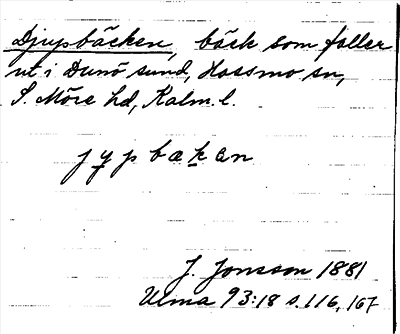 Djupsbäcken, bäck som faller
ut i Dunö sund, Hossmo sn,
S. Möre hd, Kalm. l.
jypbäkan
J. Jonsson 1881
ULMA 93:18 s. 116, 167